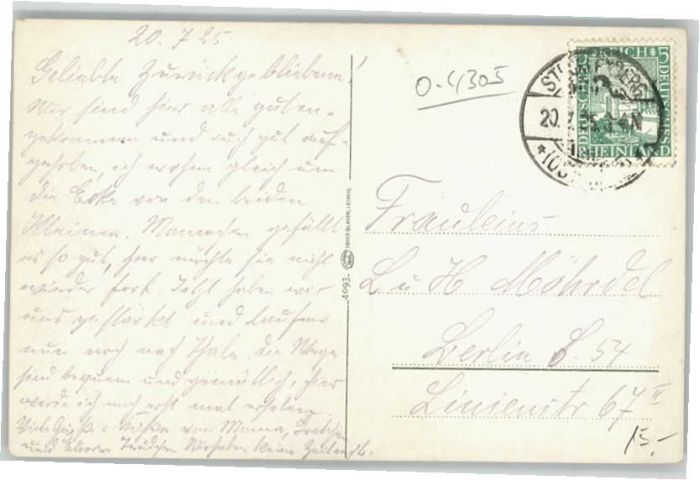 20.7.25
Geliebte Zurückgebliebene!
Wir sind hier alle guten-
gekommen und auch gut auf-
gehoben, ich wohne gleich um
die Ecke von den beiden
Kleinen. Mamachen gefällt
es so gut, hier möchte sie nicht
wieder fort. Jetzt haben wir
uns gestärkt und laufen
nun noch nach Thale. Die Wege
sind bequem und gemütlich, hier
werde ich mich erst mal erholen
Viele Grüße u. Küsse von Mama,
und Eurer Trudchen Wir haben keine
0-4305
DEUTSCHES REICH
5
RHEINLAND
20.7.25
4093.
Fräuleins
L u H Möhrdel
Berlin 54
Linienstr 67 II
15,-